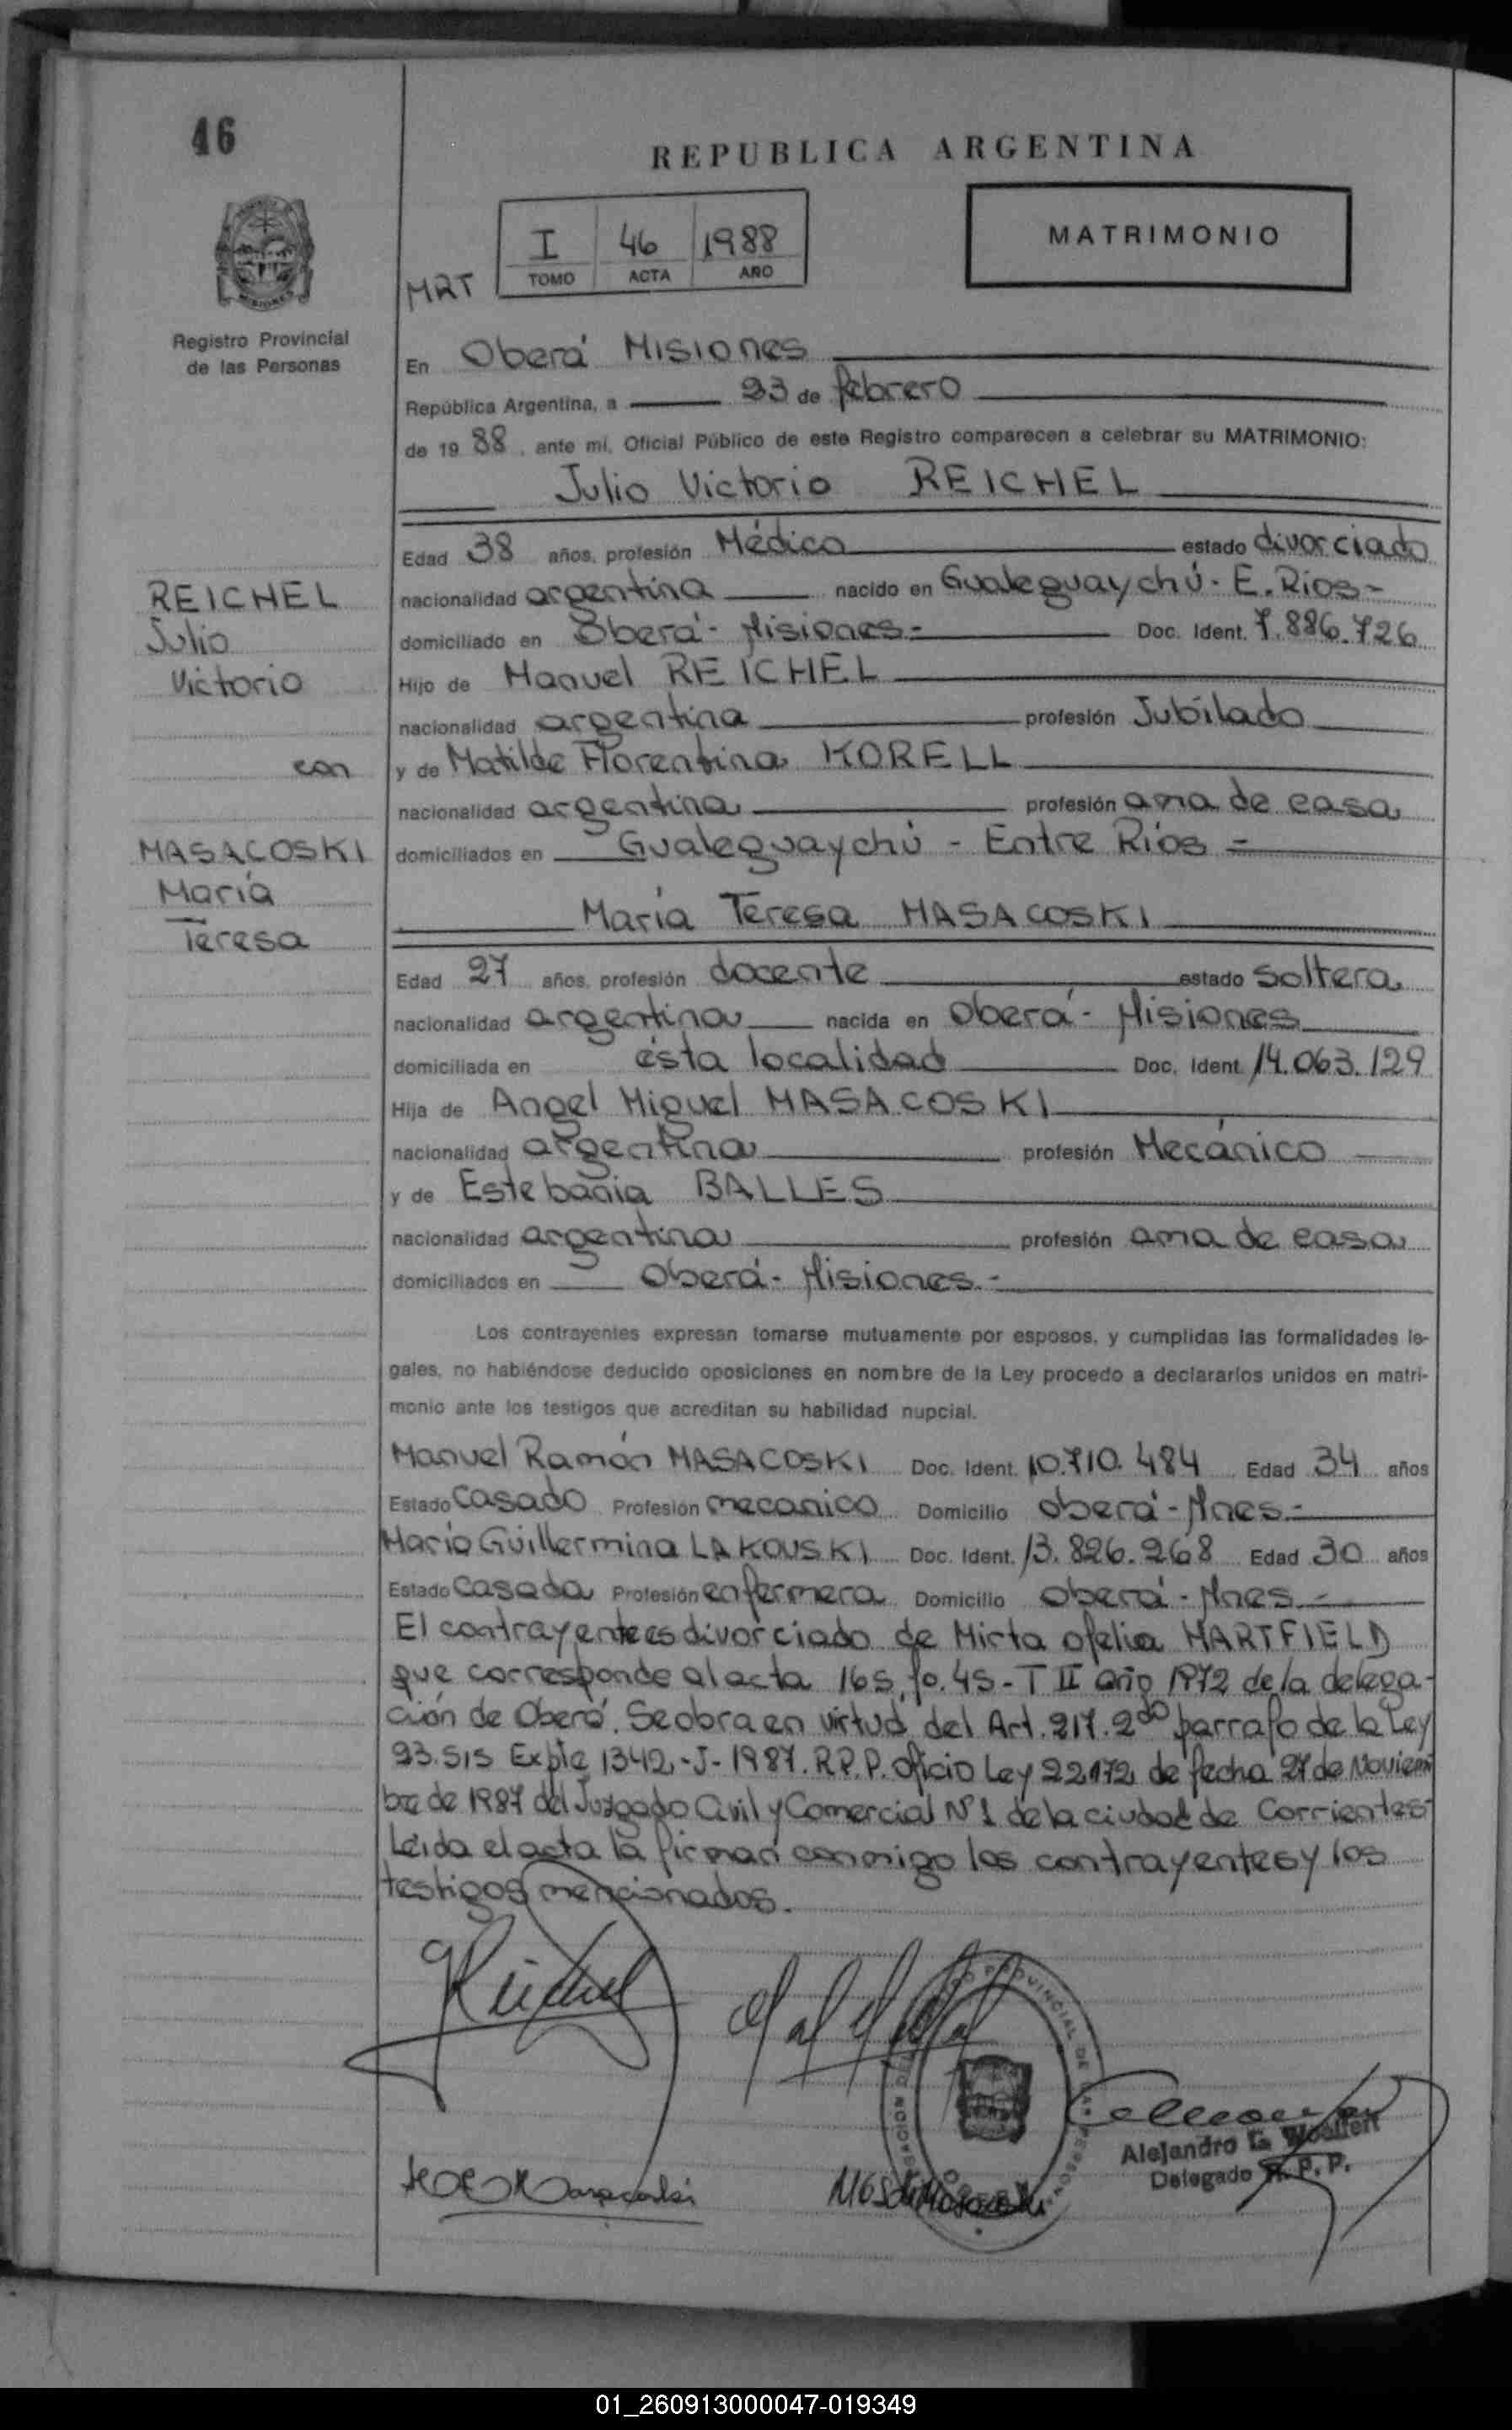 46
REPUBLICA ARGENTINA
I 46 1988
TOMO ACTA AÑO
MATRIMONIO
MRT
Registro Provincial
de las Personas
En Oberá Misiones
República Argentina, a 23 de febrero
de 19 88, ante mí, Oficial Público de este Registro comparecen a celebrar su MATRIMONIO:
Julio Victorio REICHEL
Edad 38 años, profesión Médico estado divorciado
nacionalidad argentina nacido en Gualeguaychú - E. Rios -
domiciliado en Oberá - Misiones - Doc. Ident. 7.886.726
Hijo de Manuel REICHEL
nacionalidad argentina profesión Jubilado
y de Matilde Florentina KORELL
nacionalidad argentina profesión ama de casa
domiciliados en Gualeguaychú - Entre Rios -
REICHEL
Julio
Victorio
con
MASACOSKI
María
Teresa
María Teresa MASACOSKI
Edad 27 años, profesión docente estado soltera
nacionalidad argentina nacida en Oberá - Misiones
domiciliada en ésta localidad Doc. Ident. 14.063.129
Hija de Angel Miguel MASACOSKI
nacionalidad argentina profesión Mecánico
y de Estebania BALLES
nacionalidad argentina profesión ama de casa
domiciliados en Oberá - Misiones. -
Los contrayentes expresan tomarse mutuamente por esposos, y cumplidas las formalidades le-
gales, no habiéndose deducido oposiciones en nombre de la Ley procedo a declararlos unidos en matri-
monio ante los testigos que acreditan su habilidad nupcial.
Manuel Ramón MASACOSKI Doc. Ident. 10.710.484 Edad 34 años
Estado Casado Profesión mecanico Domicilio Oberá - Mnes. -
María Guillermina LAKOUSKI Doc. Ident. 13.826.268 Edad 30 años
Estado Casada Profesión enfermera Domicilio Oberá - Mnes. -
El contrayente es divorciado de Mirta ofelia HARTFIELD
que corresponde al acta 165, fo. 45 - T II año 1972 de la delega-
ción de Oberá. Se obra en virtud del Art. 217. 2do parrafo de la Ley
23.515 Expte 1342 - J - 1987. R.P.P. oficio Ley 22172 de fecha 27 de Noviem
bre de 1987 del Juzgado Civil y Comercial Nº 1 de la ciudad de Corrientes -
Leida el acta la firman conmigo los contrayentes y los
testigos mencionados.
Reichel
Alejandro G.
Delegado R. P. P.
01_260913000047-019349